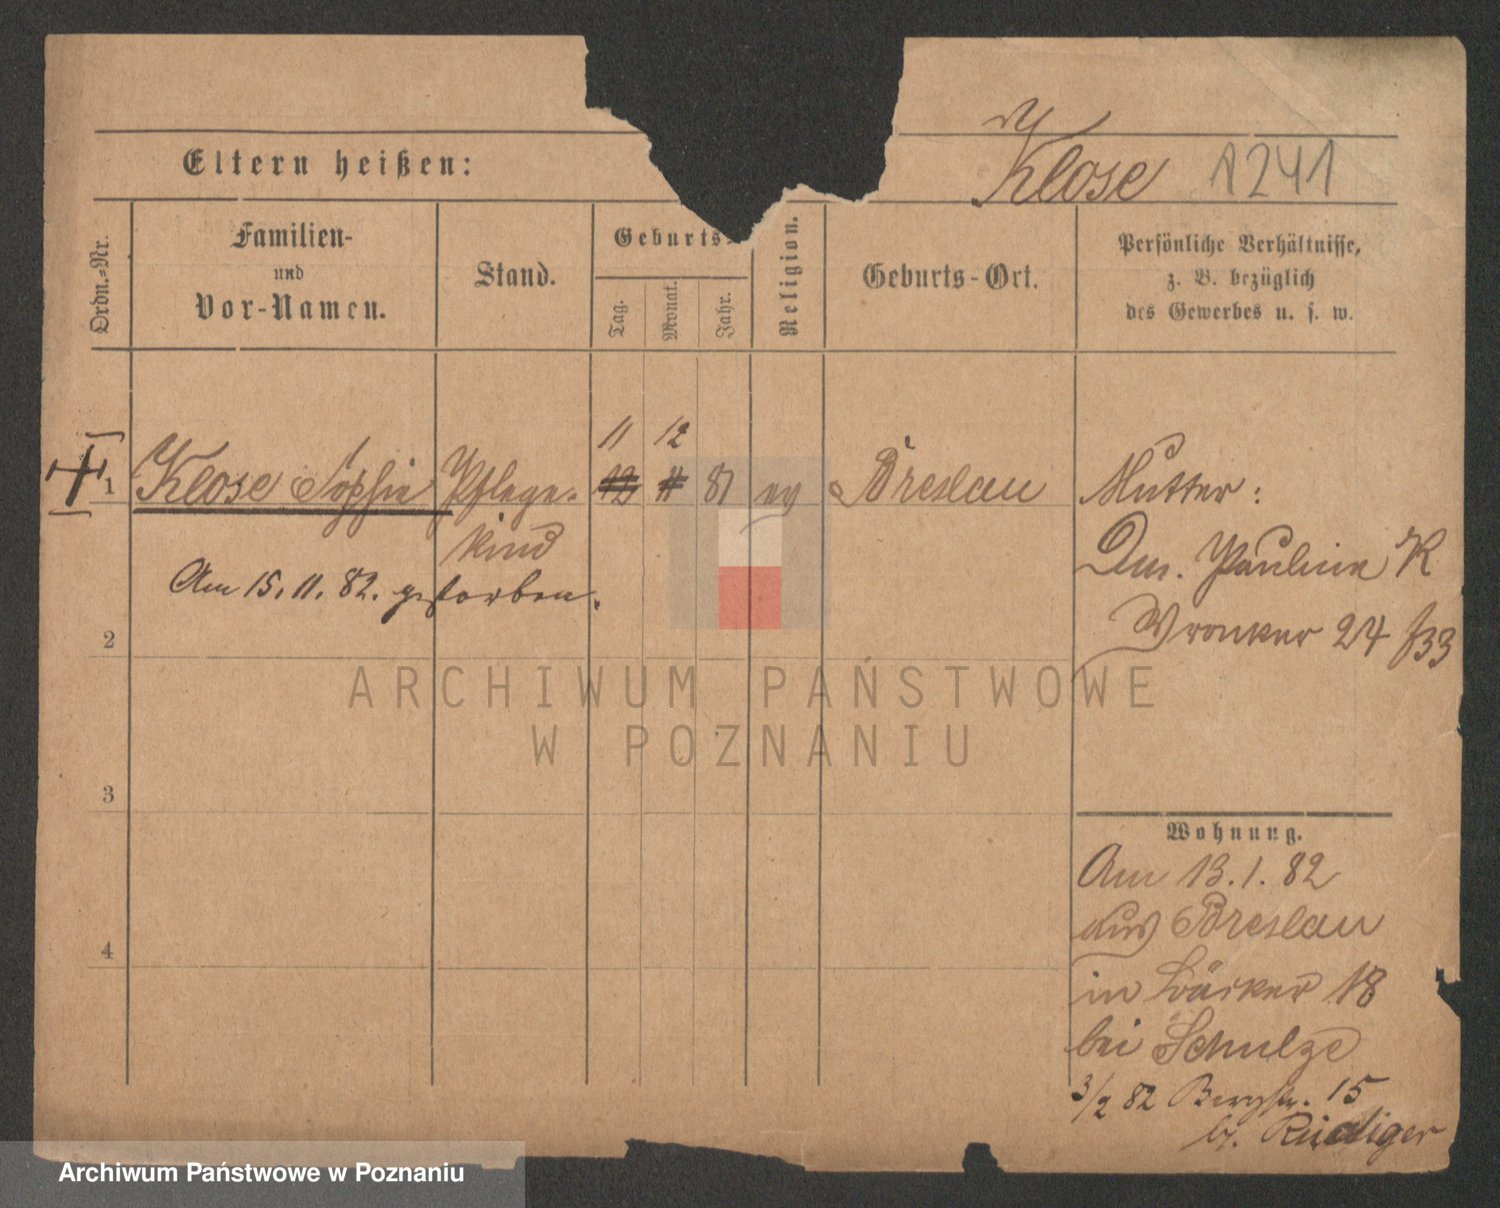 Klose 1241
Eltern heißen:
Ordn.-Nr.
Familien-
und
Vor-Namen.
Stand.
Geburts-
Tag.
Monat.
Jahr.
Religion.
Geburts-Ort.
Persönliche Verhältnisse,
z. B. bezüglich
des Gewerbes u. s. w.
11 12
1 Klose Sophie Pflege- 12 11 81 ev Breslau Mutter:
kind
Am 15. 11. 82. gestorben.
Pauline K
Wronker 24
2
3
4
Wohnung.
Am 13. 1. 82
aus Breslau
in 18
bei Schulze
3/2 82 Bergstr. 15
b. Rüdiger
ARCHIWUM PAŃSTWOWE
W POZNANIU
Archiwum Państwowe w Poznaniu